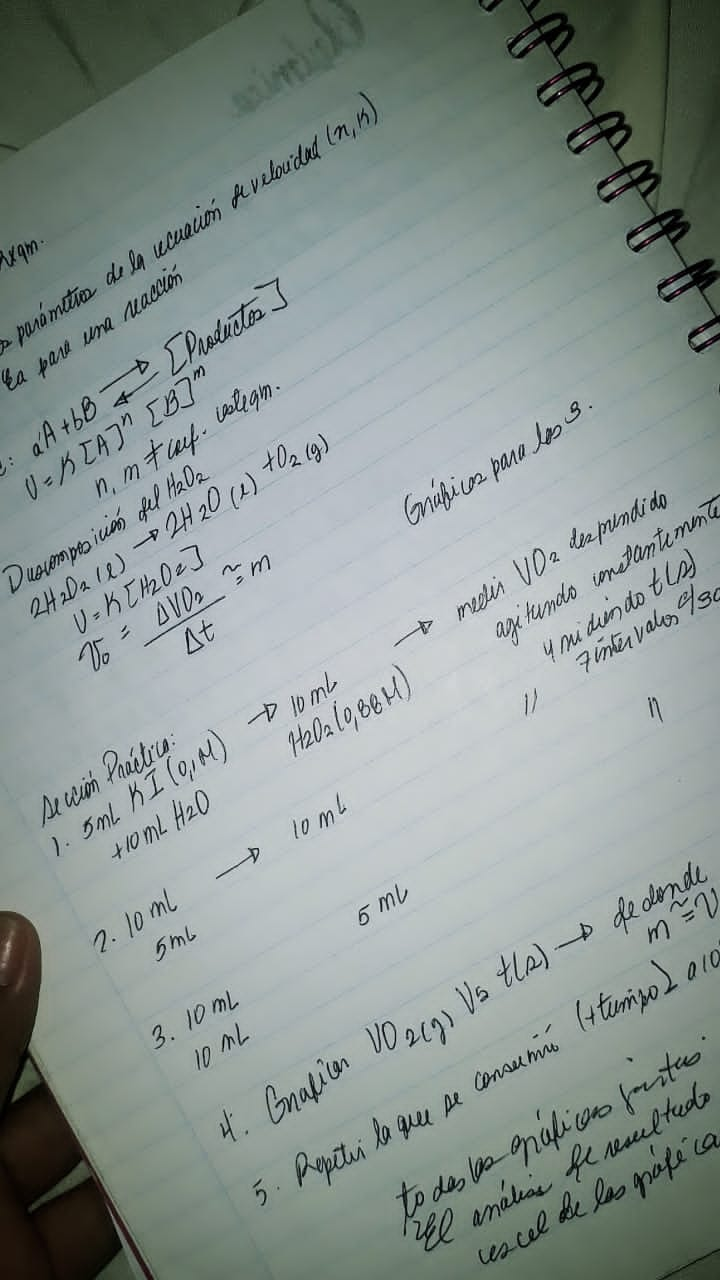 Química
Rxqm.
parámetros de la ecuación de velocidad (n, K)
Ea para una reacción
aA + bB ⇄ [Productos]
V = K [A]^n [B]^m
n, m ≠ coef. esteqm.
Descomposición del H2O2
2H2O2 (l) → 2H2O (l) + O2 (g)
V = K [H2O2]
V0 = ΔVO2 / Δt ≅ m
Gráficos para los 3.
Sección Práctica:
1. 5mL KI (0,1M) → 10 mL → medir VO2 desprendido
+10 mL H2O H2O2 (0,88M) agitando constantemente
y midiendo t(s)
7 intervalos c/30
2. 10 mL → 10 mL " "
5 mL
3. 10 mL 5 mL
10 mL
4. Graficar VO2(g) Vs t(s) → de donde
m ≅ V
5. Repetir la que se consumió (+tiempo) a 10
todas las gráficas juntas
El análisis de resultado
es el de las gráficas